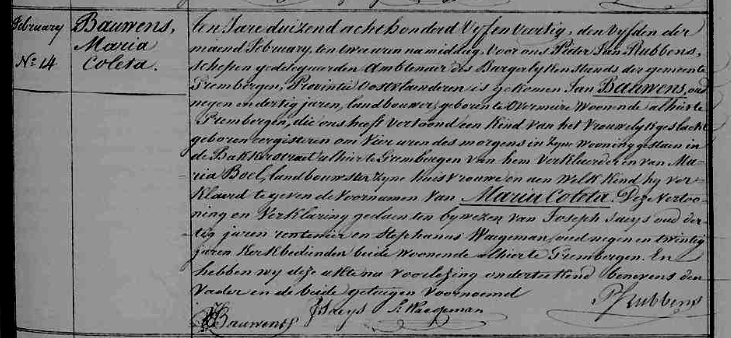 February
N.º 14
Bauwens,
Maria
Coleta.
Ten Jare duizend acht honderd Vyf en Veertig, den Vyfden der
maend February, ten twee uren namiddag, Voor ons Pieter Jan Rubbens,
Schepen gedelegueerden Ambtenaer des Burgerlyken Stands der gemeente
Grembergen, Provintie Oostvlaendren is gekomen Jan Bauwens, oud
negen en dertig jaren, landbouwer, geboren te Overmeire Woonende alhier te
Grembergen, die ons heeft Vertoond een Kind van het Vrouwelyk geslacht
geboren eergisteren om Vier uren des morgens in zyne Wooning gestaen in
de Bakk alhier te Grembergen van hem Verklaerder en van Ma-
ria Boel, landbouwster zyne huisvrouwe en aen Welk Kind hy ver-
klaerd te geven de Voornamen van Maria Coleta. Deze Vertoo-
ning en Verklaring gedaen ten bywezen van Joseph Saeys oud der-
tig jaren rentenier en Stephanus Waegeman, oud negen en twintig
jaren Kerkbedienden beide Woonende alhier te Grembergen. En
hebben wy deze akte na voorlezing onderteekend benevens den
Vader en de beide getuigen Voornoemd
PJ Rubbens
Bauwens J Saeys S. Waegeman